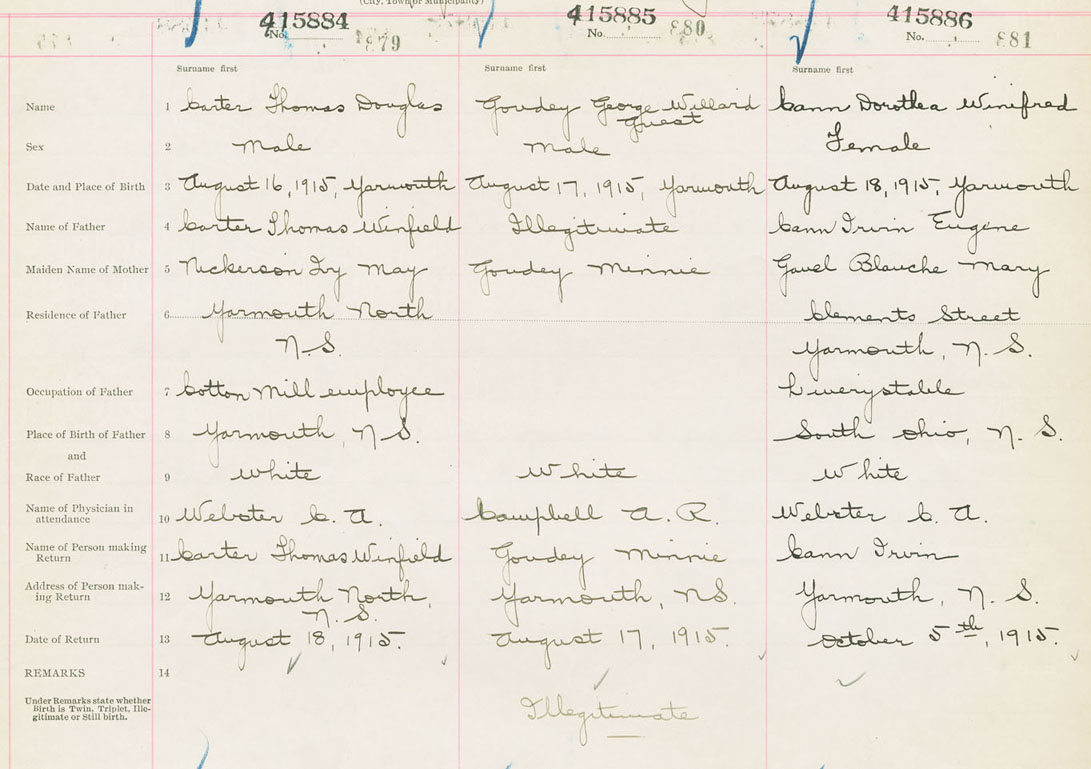 (City, Town or Municipality)
415884 415885 415886
No. 879 No. 880 No. 881
Surname first Surname first Surname first
Name 1 Carter Thomas Douglas Goudey George Willard Cann Dorothea Winifred
Guest
Sex 2 Male Male Female
Date and Place of Birth 3 August 16, 1915, Yarmouth August 17, 1915, Yarmouth August 18, 1915, Yarmouth
Name of Father 4 Carter Thomas Winfield Illegitimate Cann Irvin Eugene
Maiden Name of Mother 5 Nickerson Ivy May Goudey Minnie Gavel Blanche Mary
Residence of Father 6 Yarmouth North Clements Street
N.S. Yarmouth, N. S.
Occupation of Father 7 Cotton Mill employee Liverystable
Place of Birth of Father 8 Yarmouth, N.S. South Ohio, N. S.
and
Race of Father 9 White White White
Name of Physician in
attendance 10 Webster C. A. Campbell A. R. Webster C. A.
Name of Person making
Return 11 Carter Thomas Winfield Goudey Minnie Cann Irvin
Address of Person mak-
ing Return 12 Yarmouth North, Yarmouth, N.S. Yarmouth, N. S.
N.S.
Date of Return 13 August 18, 1915. August 17, 1915. October 5th, 1915.
REMARKS 14
Under Remarks state whether
Birth is Twin, Triplet, Ille-
gitimate or Still birth. Illegitimate